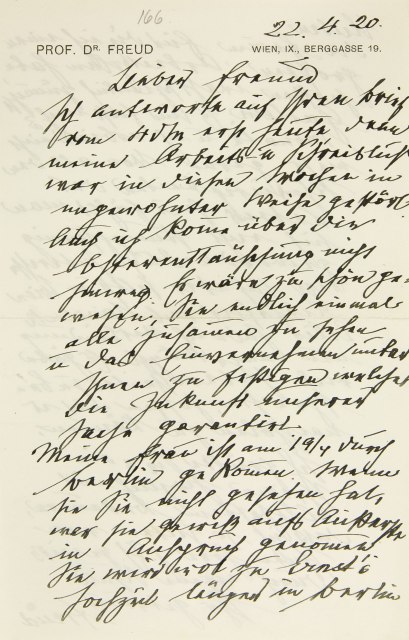 166.
22.4.20.
PROF. DR. FREUD
WIEN, IX., BERGGASSE 19.
Lieber Freund
Ich antworte auf Ihren Brief
vom 4dM erst heute, denn
meine Arbeits u Schreiblust
war in diesen Wochen in
ungewohnter Weise gestört.
Auch ich kome über die
Osterenttäuschung nicht
hinweg. Es wäre zu schön ge-
wesen, Sie endlich einmal
alle zusamen zu sehen
u das Einvernehmen unter
Ihnen zu festigen welches
die Zukunft unserer
Sache garantirt.
Meine Frau ist am 19/4 durch
Berlin gekomen. Wenn
sie Sie nicht gesehen hat,
war sie gewiß aufs Äußerste
in Anspruch genomen.
Sie wird wol zu Ernst's
Hochzeit länger in Berlin